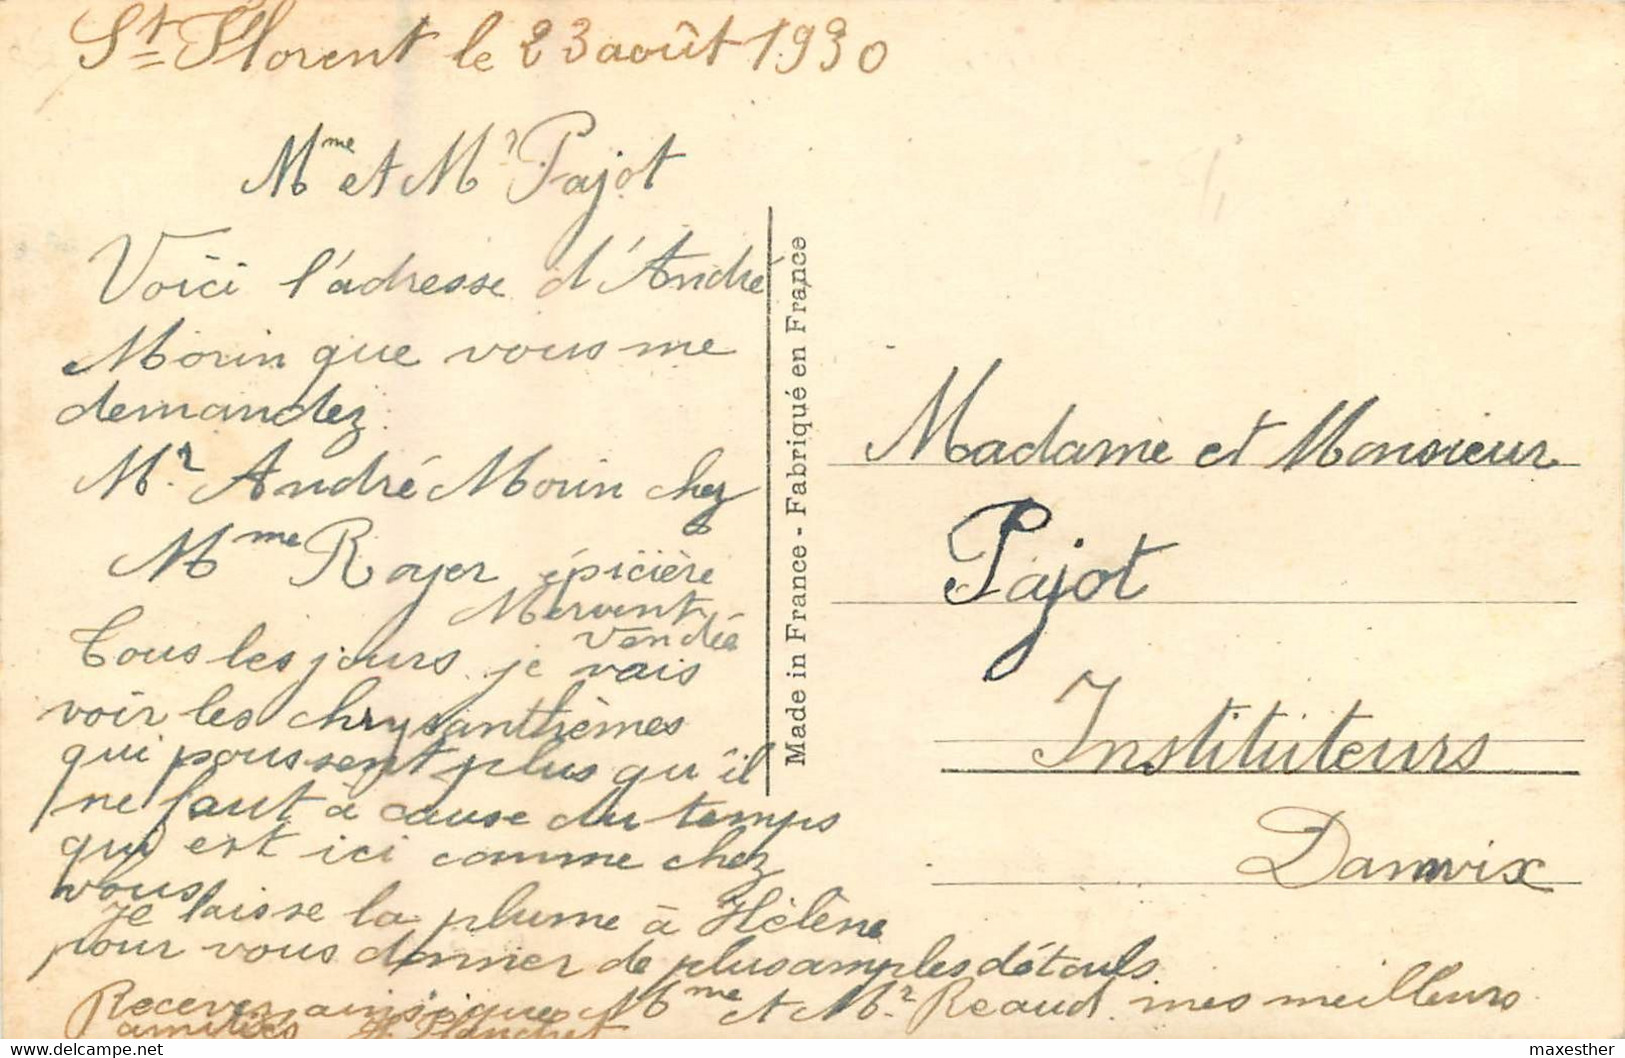 St Florent le 23 août 1930
Mme et Mr Pajot
Voici l'adresse d'André
Morin que vous me
demandez.
Mr André Morin chez
Mme Royer épicière
Mervent
Vendée
Tous les jours je vais
voir les chrysanthèmes
qui poussent plus qu'il
ne faut à cause du temps
qui est ici comme chez
vous.
Je laisse la plume à Hélène
pour vous donner de plus amples détails.
Recevez ainsi que Mme et Mr Reaud mes meilleurs
amitiés
Made in France - Fabriqué en France
Madame et Monsieur
Pajot
Instituteurs
Damvix
maxesther